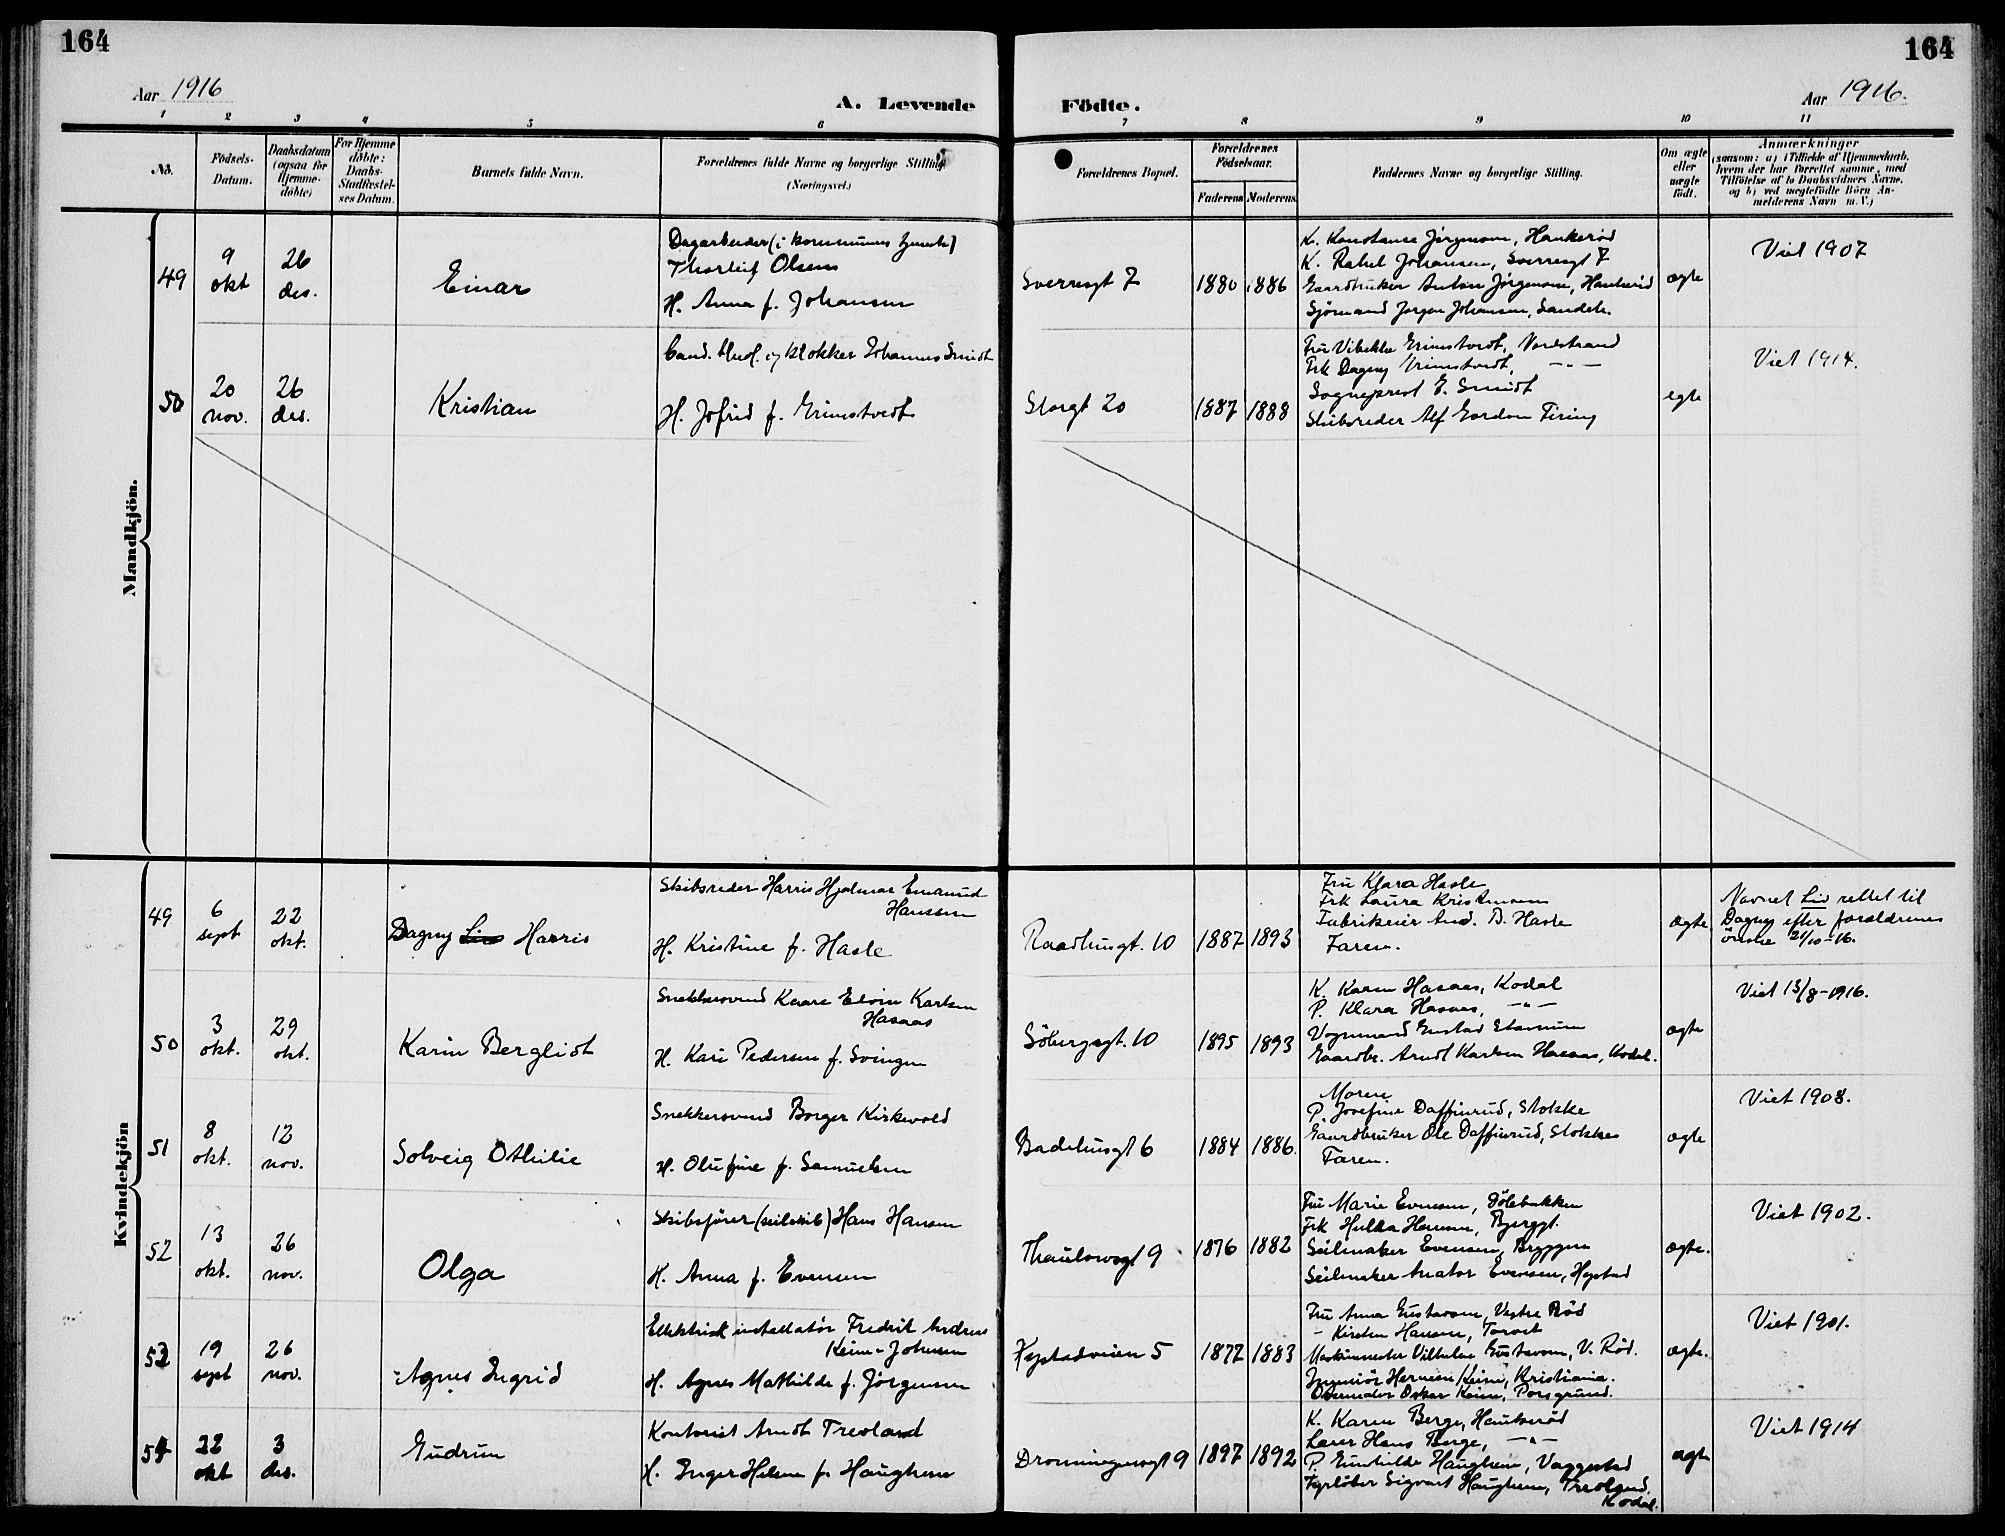 164
164
Aar 1916
A. Levende
Födte.
Aar 1916.
1 2 3 4 5 6 7 8 9 10 11
No.
Födsels-
Datum.
Daabsdatum
(ogsaa for
Hjemme-
döbte)
For Hjemme
döbte:
Daabs-
Stadfæstel-
ses Datum.
Barnets fulde Navn.
Forældrenes fulde Navne og borgerlige Stilling
(Næringsvei.)
Forældrenes Bopæl.
Forældrenes
Födselsaar.
Faderens
Moderens
Faddernes Navne og borgerlige Stilling.
Om ægte
eller
uægte
födt.
Anmærkninger
(saasom: a) i Tilfælde af Hjemmedaab,
hvem der har forrettet samme, med
Tilföielse af to Daabsvidners Navne,
og b) ved uægtefödte Börn An-
melderens Navn m. V.)
Mandkjön.
49
9
okt
26
des.
Einar
Dagarbeider (i kommunens tjeneste)
Thorleif Olsen
H. Anna f. Johansen
Sverresgt 7
1880
1886
K. Konstanse Jörgensen, Haukeröd
K. Rakel Johansen, Sverresgt 7
Gaardbruker Anton Jörgensen, Haukeröd
Sjömand Jörgen Johansen, Sandeh.
ægte
Viet 1907
50
20
nov.
26
des.
Kristian
Cand. theol. og klokker Johannes Smidt
H. Jofrid f. Grimstvedt
Storgt 20
1887
1888
Fru Vibekke Grimstvedt, Nordstrand
Frk Dagny Grimstvedt, -"-
Sogneprest E. Smidt
Skibsreder Alf Gordon Tiring
egte
Viet 1914.
Kvindekjön
49
6
sept
22
okt.
Dagny Liv Harris
Skibsreder Harris Hjalmar Emanuel
Hanssen
H. Kristine f. Hasle
Raadhusgt. 10
1887
1893
Fru Klara Hasle
Frk Laura Kristensen
Fabrikeier And. B. Hasle
Faren.
ægte.
Navnet Liv rettet til
Dagny efter forældrenes
önske 21/10-16.
50
3
okt.
29
okt.
Karin Bergliot
Snekkersvend Kaare Edvin Karlsen
Hasaas
H. Kari Pedersen f. Svingen
Söbergsgt. 10
1895
1893
K. Karen Hasaas, Kodal
P. Klara Hasaas, -"-
Vognmand Gustav
Gaardbr. Arndt Karlsen Hasaas, Kodal.
ægte
Viet 13/8-1916.
51
8
okt.
12
nov.
Solveig Othilie
Snekkersvend Borger Kirkevold
H. Olufine f. Samuelsen
Badehusgt 6
1884
1886.
Moren
P. Josefine Daffinrud, Stokke
Gaardbruker Ole Daffinrud, Stokke
Faren.
ægte
Viet 1908.
52
13
okt.
26
nov.
Olga
Skibsförer (seilskib) Hans Hansen
H. Anna f. Evensen
Thaulowsgt 9
1876
1882
Fru Marie Evensen, Sölebakken
Frk Hulda Hansen, Bjerggt.
Seilmaker Evensen, Bryggen
Seilmaker Anator Evensen, Hystad
ægte.
Viet 1902.
53
19
sept
26
nov.
Agnes Ingrid
Elektrisk installatör Fredrik Andreas
Keim-Johnsen
H. Agnes Mathilde f. Jörgensen
Hystadveien 5
1877
1883
Fru Anna Gustavsen, Vestre Röd
- Kirsten Hansen, Torvet
Maskinmester Vilhelm Gustavsen, V. Röd.
Ingeniör Herman Keim, Kristiania.
Oskar Keim, Porsgrund.
ægte.
Viet 1901.
54
22
okt
3
des.
Gudrun
Kontorist Arndt Trevland
H. Inger Helene f. Haughem
Dronningensgt 9
1897
1892
K. Karen Berge, Haukeröd
Lærer Hans Berge, -"-
P. Gunhilde Haughem, Vaggestad
Fyrböter Sigvart Haughem, Trevland,
Kodal.
ægte
Viet 1914